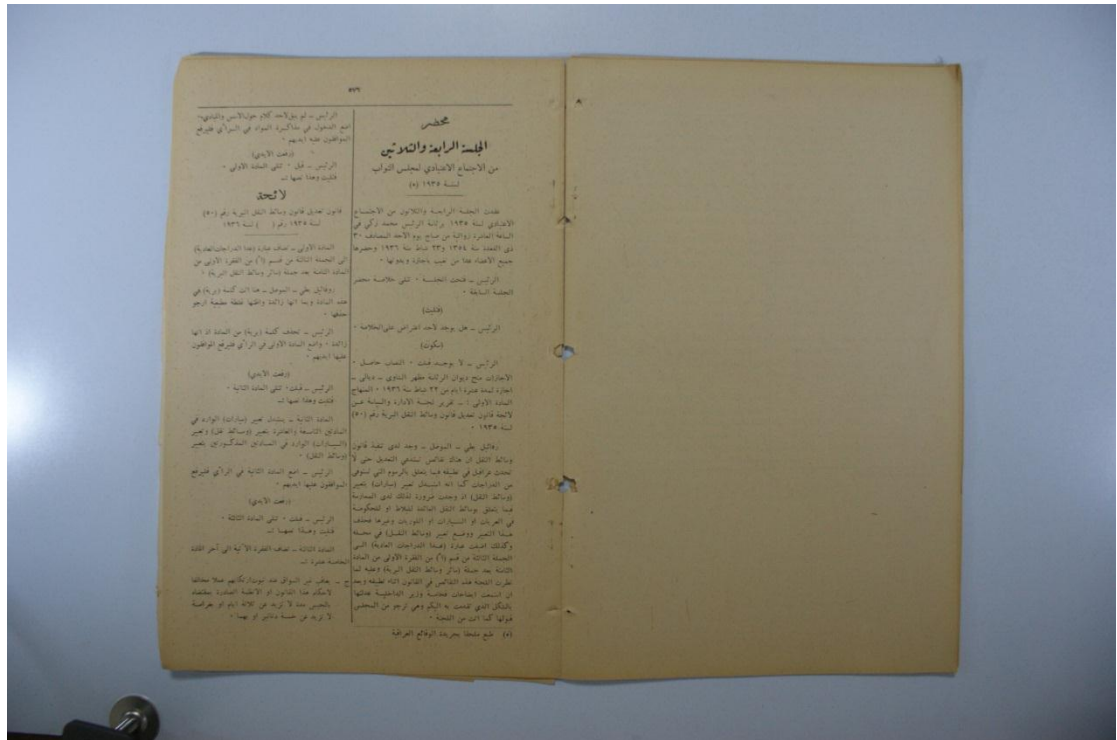 ٥٧٦
محضر
الجلسة الرابعة والثلاثين
من الاجتماع الاعتيادي لمجلس النواب
لسنة ١٩٣٥ (*)
عقدت الجلسة الرابعة والثلاثون من الاجتماع
الاعتيادي لسنة ١٩٣٥ برئاسة الرئيس محمد زكي في
الساعة العاشرة زوالية من صباح يوم الاحد المصادف ٣٠
ذي القعدة سنة ١٣٥٤ و٢٣ شباط سنة ١٩٣٦ وحضرها
جميع الاعضاء عدا من تغيب باجازة وبدونها ٠
الرئيس ــ فتحت الجلسة ٠ تتلى خلاصة محضر
الجلسة السابقة ٠
(فتليت)
الرئيس ــ هل يوجد لاحد اعتراض على الخلاصة ٠
(سكوت)
الرئيس ــ لا يوجد قبلت ٠ النصاب حاصل ٠
الاجازات منح ديوان الرئاسة مظهر ــ ديالى ــ
اجازة لمدة عشرة ايام من ٢٢ شباط سنة ١٩٣٦ ٠ المنهاج
المادة الاولى : ــ تقرير لجنة الادارة عن
لائحة قانون تعديل قانون وسائط النقل البرية رقم (٥٠)
لسنة ١٩٣٥ ٠
روفائيل بطي ــ الموصل ــ وجد لدى تنفيذ قانون
وسائط النقل ان هناك نقائص تستدعي التعديل حتى لا
تحدث عراقيل في تطبيقه فيما يتعلق بالرسوم التي تستوفى
من الدراجات كما انه استبدل تعبير (سيارات) بتعبير
(وسائط النقل) اذ وجدت ضرورة لذلك لدى الممارسة
فيما يتعلق بوسائط النقل العائدة للبلاط او للحكومة
في العربات او السيارات او اللوريات وغيرها فحذف
هذا التعبير ووضع تعبير (وسائط النقل) في محله
وكذلك اضيفت عبارة (عدا الدراجات العادية) الى
الجملة الثالثة من قسم (ا) من الفقرة الاولى من المادة
الثامنة بعد جملة (سائر وسائط النقل البرية) وعليه لما
نظرت اللجنة هذه النقائص في القانون اثناء تطبيقه وبعد
ان استمعت ايضاحات فخامة وزير الداخلية عدلتها
بالشكل الذي تقدمت به اليكم وهي ترجو من المجلس
قبولها كما اتت من اللجنة ٠
(*) طبع ملحقا بجريدة الوقائع العراقية
الرئيس ــ لم يبق لاحد كلام حول الاسس والمبادىء
اضع الدخول في مذاكرة المواد في الرأي فليرفع
الموافقون عليه ايديهم ٠
(رفعت الايدي)
الرئيس ــ قبل ٠ تتلى المادة الاولى ٠
فتليت وهذا نصها :ــ
لائحة
قانون تعديل قانون وسائط النقل البرية رقم (٥٠)
لسنة ١٩٣٥ رقم ( ) لسنة ١٩٣٦
المادة الاولى ــ تضاف عبارة (عدا الدراجات العادية)
الى الجملة الثالثة من قسم (ا) من الفقرة الاولى من
المادة الثامنة بعد جملة (سائر وسائط النقل البرية) ٠
روفائيل بطي ــ الموصل ــ هنا اتت كلمة (برية) في
هذه المادة وبما انها زائدة واظنها غلطة مطبعية ارجو
حذفها ٠
الرئيس ــ تحذف كلمة (برية) من المادة اذ انها
زائدة ٠ واضع المادة الاولى في الرأي فليرفع الموافقون
عليها ايديهم ٠
(رفعت الايدي)
الرئيس ــ قبلت ٠ تتلى المادة الثانية ٠
فتليت وهذا نصها :ــ
المادة الثانية ــ يستبدل تعبير (سيارات) الوارد في
المادتين التاسعة والعاشرة بتعبير (وسائط نقل) وتعبير
(السيارات) الوارد في المادتين المذكورتين بتعبير
(وسائط النقل) ٠
الرئيس ــ اضع المادة الثانية في الرأي فليرفع
الموافقون عليها ايديهم ٠
(رفعت الايدي)
الرئيس ــ قبلت ٠ تتلى المادة الثالثة ٠
فتليت وهذا نصها :ــ
المادة الثالثة ــ تضاف الفقرة الآتية الى آخر المادة
الخامسة عشرة :ــ
ج ــ يعاقب غير السواق عند ثبوت ارتكابهم عملا مخالفا
لاحكام هذا القانون او الانظمة الصادرة بمقتضاه
بالحبس مدة لا تزيد عن ثلاثة ايام او بغرامة
لا تزيد عن خمسة دنانير او بهما ٠